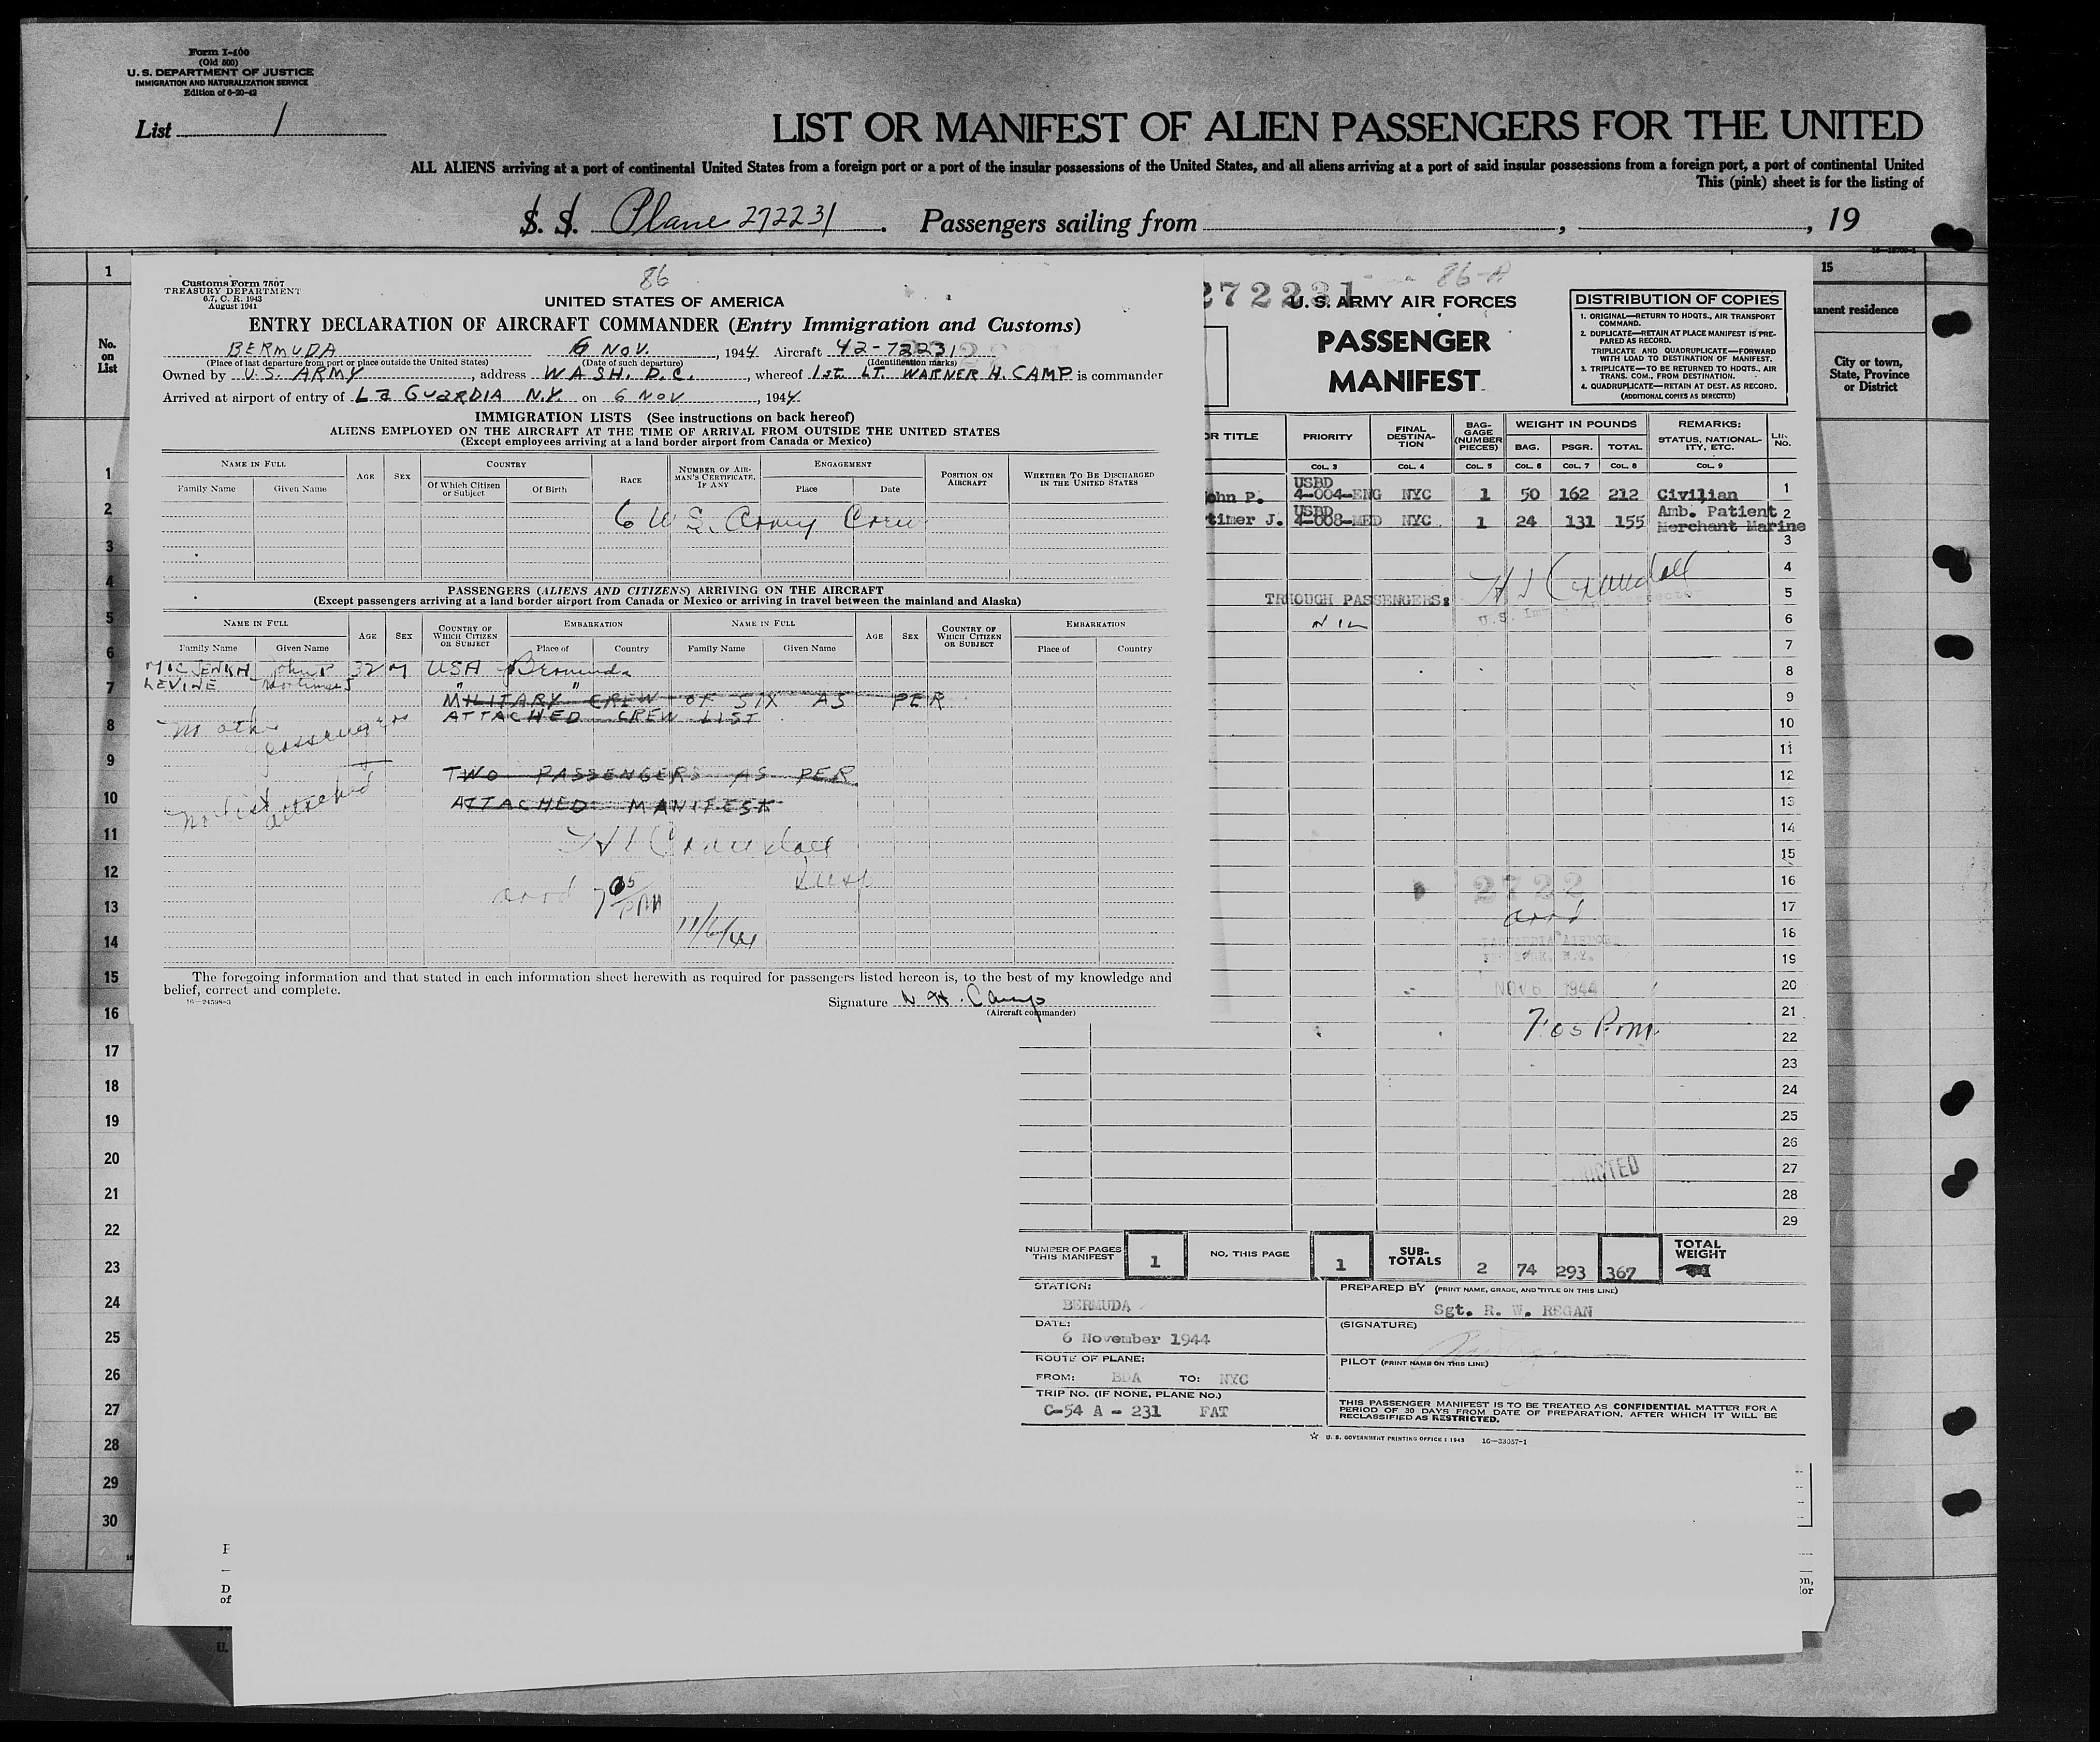 Form I-400
(Old 500)
U. S. DEPARTMENT OF JUSTICE
IMMIGRATION AND NATURALIZATION SERVICE
Edition of 6-20-42
List 1
LIST OR MANIFEST OF ALIEN PASSENGERS FOR THE UNITED
ALL ALIENS arriving at a port of continental United States from a foreign port or a port of the insular possessions of the United States, and all aliens arriving at a port of said insular possessions from a foreign port, a port of continental United
This (pink) sheet is for the listing of
S. S. Plane 272231 . Passengers sailing from , , 19
1
No.
on
List
1
2
3
4
5
6
7
8
9
10
11
12
13
14
15
16
17
18
19
20
21
22
23
24
25
26
27
28
29
30
Customs Form 7507
TREASURY DEPARTMENT
6.7, C. R. 1943
August 1941
86
UNITED STATES OF AMERICA
ENTRY DECLARATION OF AIRCRAFT COMMANDER (Entry Immigration and Customs)
BERMUDA 6 NOV. , 1944 Aircraft 42-72231
(Place of last departure from port or place outside the United States) (Date of such departure) (Identification marks)
Owned by U.S. ARMY , address WASH. D.C. , whereof 1st LT. WARNER H. CAMP is commander
Arrived at airport of entry of La GUARDIA N.Y. on 6 NOV , 1944
IMMIGRATION LISTS (See instructions on back hereof)
ALIENS EMPLOYED ON THE AIRCRAFT AT THE TIME OF ARRIVAL FROM OUTSIDE THE UNITED STATES
(Except employees arriving at a land border airport from Canada or Mexico)
NAME IN FULL AGE SEX COUNTRY RACE NUMBER OF AIRMAN'S CERTIFICATE, IF ANY ENGAGEMENT POSITION ON AIRCRAFT WHETHER TO BE DISCHARGED IN THE UNITED STATES
Family Name Given Name Of Which Citizen or Subject Of Birth Place Date
6 U S. Army Crew
PASSENGERS (ALIENS AND CITIZENS) ARRIVING ON THE AIRCRAFT
(Except passengers arriving at a land border airport from Canada or Mexico or arriving in travel between the mainland and Alaska)
NAME IN FULL AGE SEX COUNTRY OF WHICH CITIZEN OR SUBJECT EMBARKATION NAME IN FULL AGE SEX COUNTRY OF WHICH CITIZEN OR SUBJECT EMBARKATION
Family Name Given Name Place of Country Family Name Given Name Place of Country
John P 32 M USA Bermuda
LEVINE Mortimer J " "
MILITARY CREW OF SIX AS PER
ATTACHED CREW LIST
No other
passengers
TWO PASSENGERS AS PER
ATTACHED MANIFEST
No list
attached
H J Crandall
arrd 7 05 PM
11/6/44
The foregoing information and that stated in each information sheet herewith as required for passengers listed hereon is, to the best of my knowledge and
belief, correct and complete.
16—24598-3
Signature W. H. Camp
(Aircraft commander)
272231
86-A
U. S. ARMY AIR FORCES
PASSENGER
MANIFEST
DISTRIBUTION OF COPIES
1. ORIGINAL—RETURN TO HDQTS., AIR TRANSPORT
COMMAND.
2. DUPLICATE—RETAIN AT PLACE MANIFEST IS PRE-
PARED AS RECORD.
TRIPLICATE AND QUADRUPLICATE—FORWARD
WITH LOAD TO DESTINATION OF MANIFEST.
3. TRIPLICATE—TO BE RETURNED TO HDQTS., AIR
TRANS. COM., FROM DESTINATION.
4. QUADRUPLICATE—RETAIN AT DEST. AS RECORD.
(ADDITIONAL COPIES AS DIRECTED)
OR TITLE PRIORITY FINAL DESTINA-TION BAG-GAGE (NUMBER PIECES) WEIGHT IN POUNDS REMARKS:
BAG. PSGR. TOTAL STATUS, NATIONAL-ITY, ETC.
COL. 3 COL. 4 COL. 5 COL. 6 COL. 7 COL. 8 COL. 9
ohn P. USBD 4-004-ENG NYC 1 50 162 212 Civilian 1
timer J. USBD 4-008-MED NYC 1 24 131 155 Amb. Patient 2
Merchant Marine
3
4
H J Crandall
TRHOUGH PASSENGERS: 5
U.S. Im
NIL 6
7
8
9
10
11
12
13
14
15
2722 16
arrd 17
LAGUARDIA AIRPORT 18
N.Y. 19
NOV 6 1944 20
21
7:05 P.m. 22
23
24
25
26
27
28
29
NUMBER OF PAGES THIS MANIFEST 1 NO. THIS PAGE 1 SUB-TOTALS 2 74 293 367 TOTAL WEIGHT
STATION:
BERMUDA
DATE:
6 November 1944
ROUTE OF PLANE:
FROM: BDA TO: NYC
TRIP NO. (IF NONE, PLANE NO.)
C-54 A - 231 FAT
PREPARED BY (PRINT NAME, GRADE, AND TITLE ON THIS LINE)
Sgt. R. W. REGAN
(SIGNATURE)
PILOT (PRINT NAME ON THIS LINE)
THIS PASSENGER MANIFEST IS TO BE TREATED AS CONFIDENTIAL MATTER FOR A
PERIOD OF 30 DAYS FROM DATE OF PREPARATION, AFTER WHICH IT WILL BE
RECLASSIFIED AS RESTRICTED.
☆ U. S. GOVERNMENT PRINTING OFFICE : 1943 16—33057-1
15
anent residence
City or town,
State, Province
or District
D
of
U.
on,
or